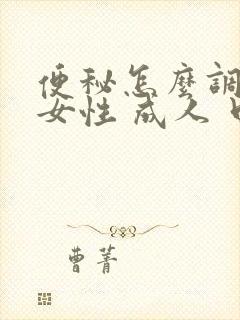 便秘怎麼調
女性 成人
曹菁